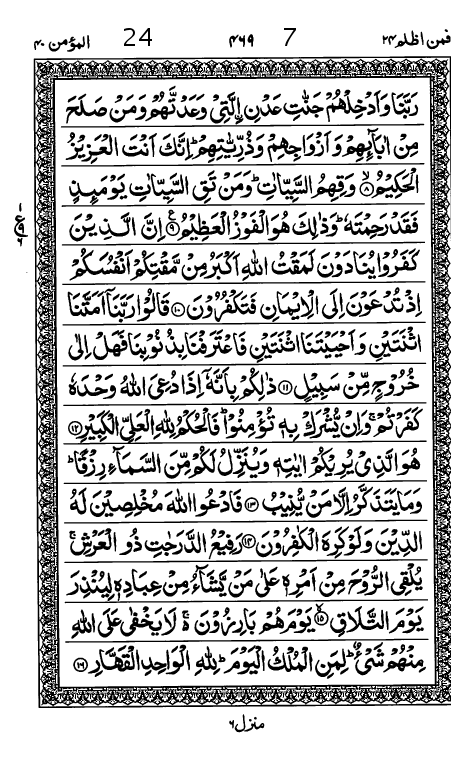 فمن اظلم ۲۴ 7 ۴۶۹ 24 المؤمن ۴۰
رَبَّنَا وَاَدْخِلْهُمْ جَنّٰتِ عَدْنِ ِ۟الَّتِیْ وَعَدْتَّهُمْ وَمَنْ صَلَحَ
مِنْ اٰبَآئِهِمْ وَاَزْوَاجِهِمْ وَذُرِّیّٰتِهِمْ ؕ اِنَّكَ اَنْتَ الْعَزِیْزُ
الْحَكِیْمُ ۙ﴿۸﴾ وَقِهِمُ السَّیِّاٰتِ ؕ وَمَنْ تَقِ السَّیِّاٰتِ یَوْمَئِذٍ
فَقَدْ رَحِمْتَهٗ ؕ وَذٰلِكَ هُوَ الْفَوْزُ الْعَظِیْمُ ﴿۹﴾ ع اِنَّ الَّذِیْنَ
كَفَرُوْا یُنَادَوْنَ لَمَقْتُ اللّٰهِ اَكْبَرُ مِنْ مَّقْتِكُمْ اَنْفُسَكُمْ
اِذْ تُدْعَوْنَ اِلَی الْاِیْمَانِ فَتَكْفُرُوْنَ ﴿۱۰﴾ قَالُوْا رَبَّنَاۤ اَمَتَّنَا
اثْنَتَیْنِ وَاَحْیَیْتَنَا اثْنَتَیْنِ فَاعْتَرَفْنَا بِذُنُوْبِنَا فَهَلْ اِلٰی
خُرُوْجٍ مِّنْ سَبِیْلٍ ﴿۱۱﴾ ذٰلِكُمْ بِاَنَّهٗۤ اِذَا دُعِیَ اللّٰهُ وَحْدَهٗ
كَفَرْتُمْ ۚ وَاِنْ یُّشْرَكْ بِهٖ تُؤْمِنُوْا ؕ فَالْحُكْمُ لِلّٰهِ الْعَلِیِّ الْكَبِیْرِ ﴿۱۲﴾
هُوَ الَّذِیْ یُرِیْكُمْ اٰیٰتِهٖ وَیُنَزِّلُ لَكُمْ مِّنَ السَّمَآءِ رِزْقًا ؕ
وَمَا یَتَذَكَّرُ اِلَّا مَنْ یُّنِیْبُ ﴿۱۳﴾ فَادْعُوا اللّٰهَ مُخْلِصِیْنَ لَهُ
الدِّیْنَ وَلَوْ كَرِهَ الْكٰفِرُوْنَ ﴿۱۴﴾ رَفِیْعُ الدَّرَجٰتِ ذُو الْعَرْشِ ۚ
یُلْقِی الرُّوْحَ مِنْ اَمْرِهٖ عَلٰی مَنْ یَّشَآءُ مِنْ عِبَادِهٖ لِیُنْذِرَ
یَوْمَ التَّلَاقِ ۙ﴿۱۵﴾ یَوْمَ هُمْ بَارِزُوْنَ ۚ لَا یَخْفٰی عَلَی اللّٰهِ
مِنْهُمْ شَیْءٌ ؕ لِمَنِ الْمُلْكُ الْیَوْمَ ؕ لِلّٰهِ الْوَاحِدِ الْقَهَّارِ ﴿۱۶﴾
منزل ۶